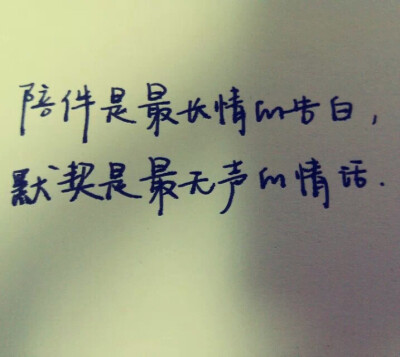 陪伴是最长情的告白,
默契是最无声的情话.